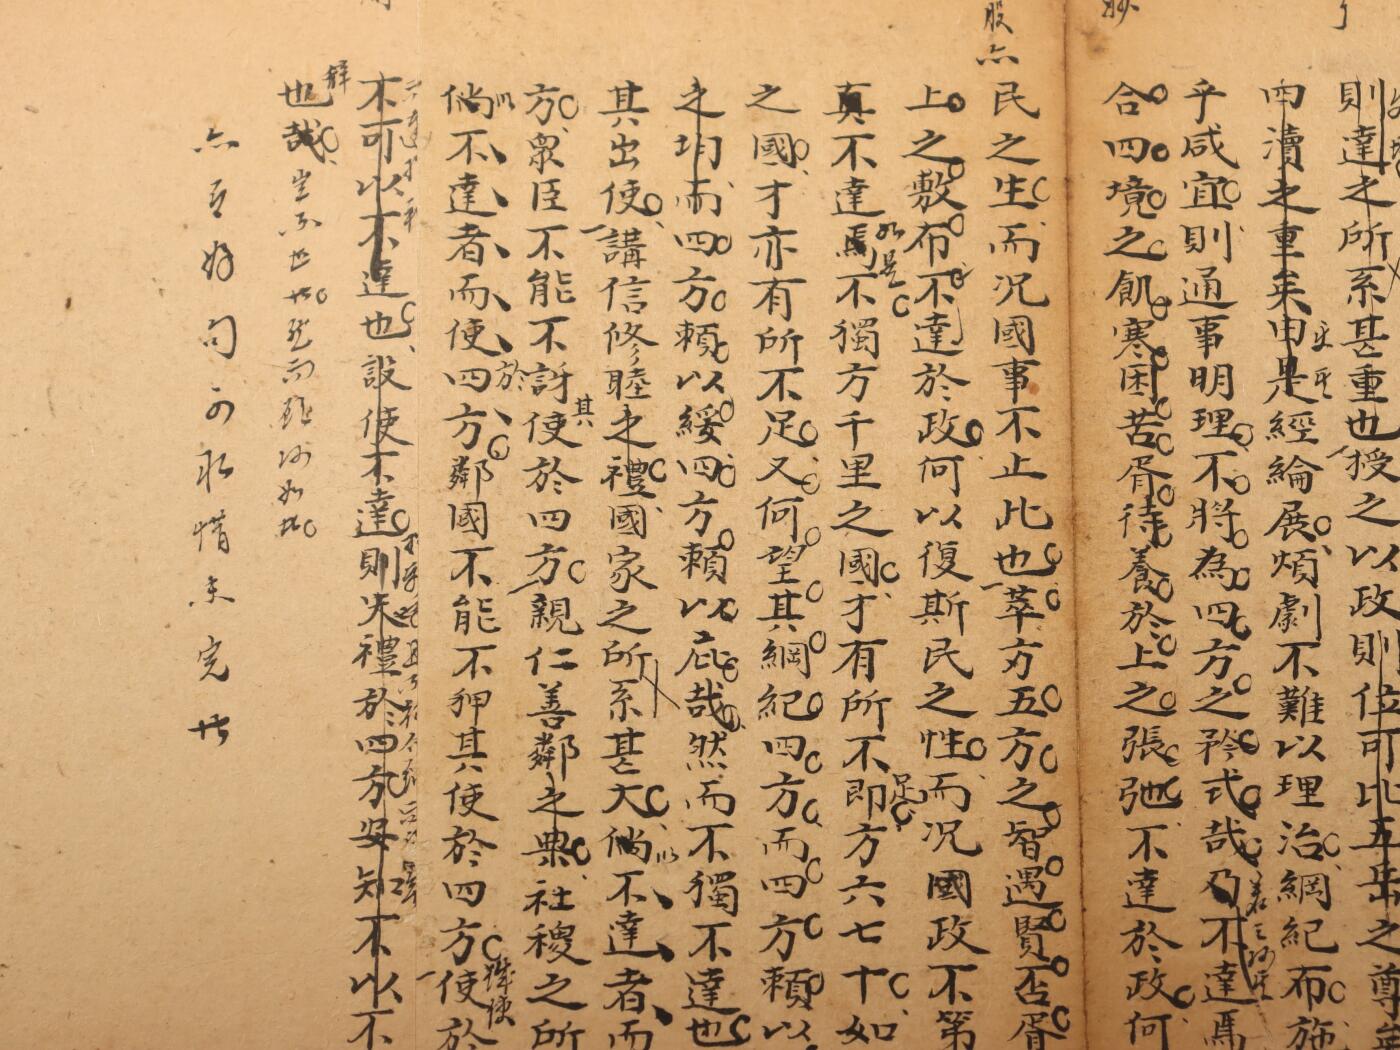 則達之所系甚重也授之以政則位可比五岳之尊
瀆之重矣由是經綸展煩劇不難以理治綱紀布施
乎咸宜則通事明理不將為四方之矜式哉乃不達焉
合四境之飢寒困苦胥待養於上之張弛不達於政何
民之生而况國事不止此也萃方五方之智遇賢否胥
上之敷布不達於政何以復斯民之性而况國政不第
真不達焉不獨方千里之國才有所不即方六七十如
之國才亦有所不足又何望其綱紀四方而四方賴以
之均而四方賴以綏四方賴以庇哉然而不獨不達也
其出使講信修睦之禮國家之所系甚大倘不達者而
方眾臣不能不訝使於四方親仁善鄰之典社稷之所
倘不達者而使四方鄰國不能不狎其使於四方使於
不可以不達也設使不達則失禮於四方安知不以不
也哉
豈不
而
亦有好句可取惜未完